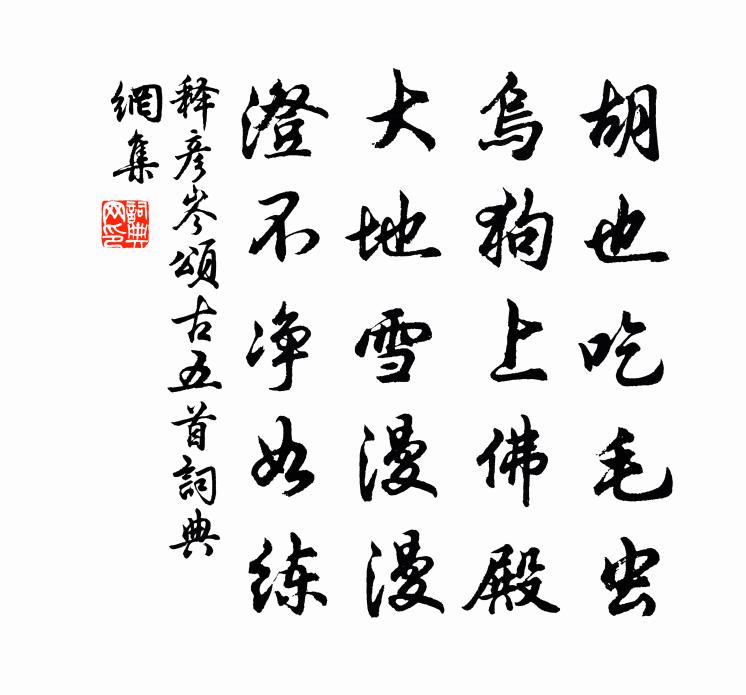 胡也吃毛虫
乌狗上佛殿
大地雪漫漫
澄不净如练
释彦岑颂古五首詞典
網集
詞典網印